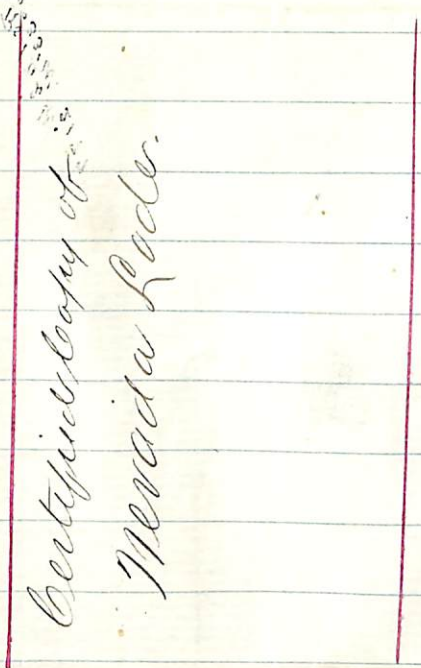 Certified Copy of
Nevada Lode.